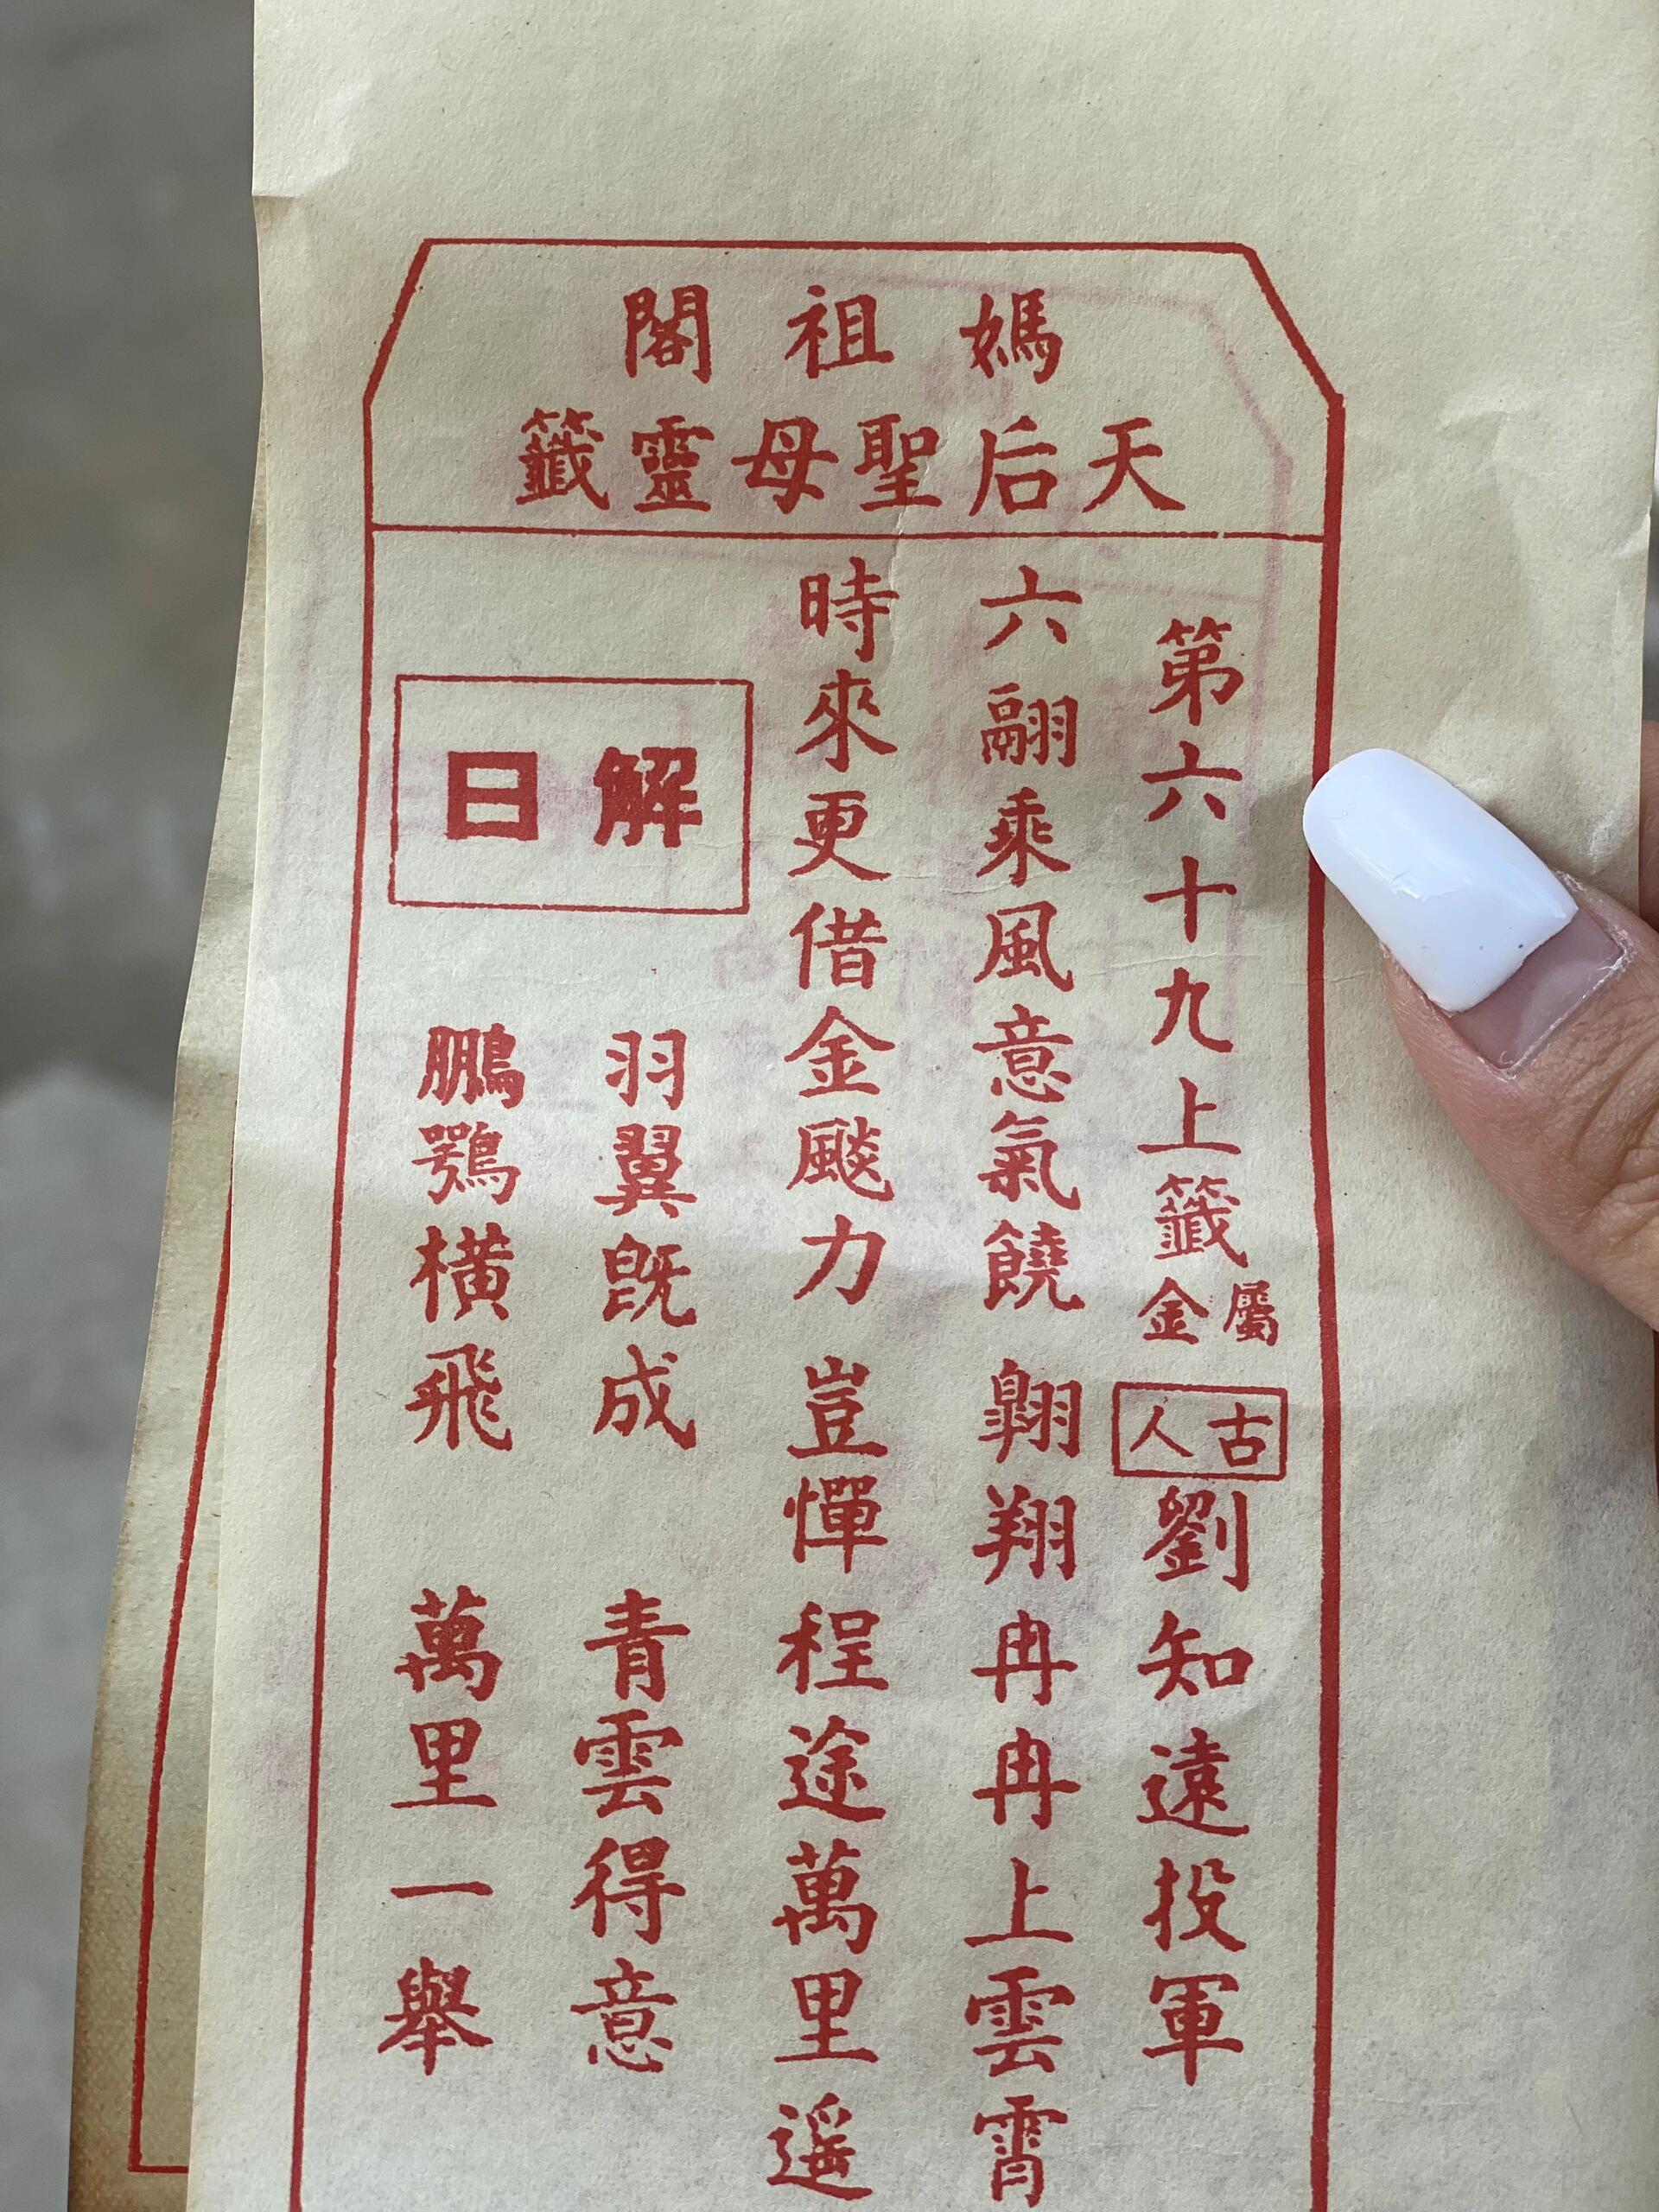 媽祖閣
天后聖母靈籤
第六十九上籤屬金 古人 劉知遠投軍
六翮乘風意氣饒 翱翔冉冉上雲霄
時來更借金颷力 豈憚程途萬里遥
解曰
羽翼旣成 青雲得意
鵬鶚橫飛 萬里一舉